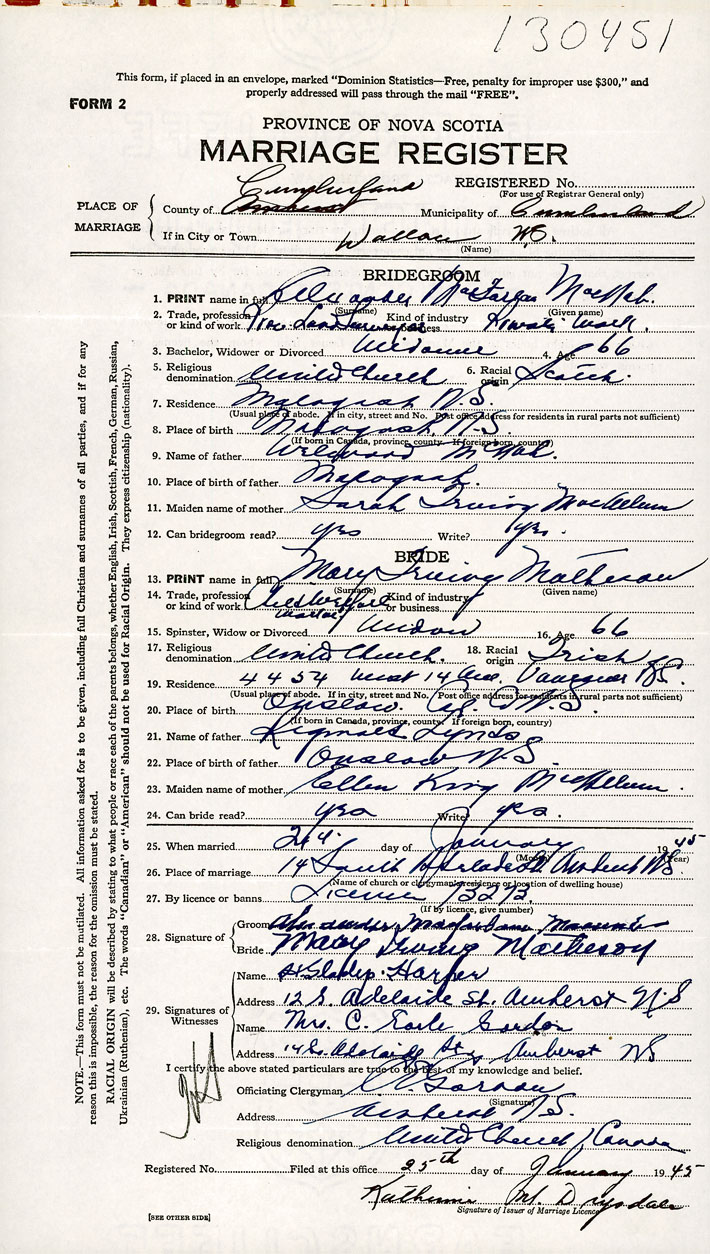 130451
This form, if placed in an envelope, marked "Dominion Statistics—Free, penalty for improper use $300," and
properly addressed will pass through the mail "FREE".
FORM 2
PROVINCE OF NOVA SCOTIA
MARRIAGE REGISTER
REGISTERED No.
(For use of Registrar General only)
PLACE OF MARRIAGE
County of Cumberland Municipality of Cumberland
If in City or Town Wallace N.S.
(Name)
BRIDEGROOM
1. PRINT name in full Alexander MacFarlane MacNab.
(Surname) (Given name)
2. Trade, profession or kind of work Prov. Land Surveyor Kind of industry or business work.
3. Bachelor, Widower or Divorced Widower 4. Age 66
5. Religious denomination United Church 6. Racial origin Scotch.
7. Residence Malagash N.S.
(Usual place of abode. If in city, street and No. Post office address for residents in rural parts not sufficient)
8. Place of birth Malagash, N.S.
(If born in Canada, province, county. If foreign born, country)
9. Name of father McNab.
10. Place of birth of father Malagash.
11. Maiden name of mother Sarah Irving
12. Can bridegroom read? yes Write? yes.
BRIDE
13. PRINT name in full Mary Irving Matheson
(Surname) (Given name)
14. Trade, profession or kind of work Kind of industry or business
15. Spinster, Widow or Divorced Widow 16. Age 66
17. Religious denomination United Church. 18. Racial origin Irish
19. Residence 4454 West 14 Ave. Vancouver BC.
(Usual place of abode. If in city, street and No. Post office address for residents in rural parts not sufficient)
20. Place of birth Onslow. Col. Co N.S.
(If born in Canada, province, county. If foreign born, country)
21. Name of father Lynds
22. Place of birth of father Onslow N.S
23. Maiden name of mother Ellen King
24. Can bride read? yes Write? yes.
25. When married 24. day of January 1945
(Month) (Year)
26. Place of marriage 14 South Adelaide St. Amherst NS.
(Name of church or clergyman's residence or location of dwelling house)
27. By licence or banns License
(If by licence, give number)
28. Signature of
Groom Alexander Macfarlane
Bride Mary Irving Matheson
29. Signatures of Witnesses
Name Gladys Harper
Address 12 S. Adelaide St. Amherst N.S
Name Mrs. C. Earle Gordon
Address 14 So. Adelaide St, Amherst NS
I certify the above stated particulars are true to the best of my knowledge and belief.
Officiating Clergyman Gordon
(Signature)
Address Amherst N.S.
Religious denomination United Church of Canada
Registered No. Filed at this office 25th day of January 1945
Katherine M. Drysdale
Signature of Issuer of Marriage Licence
[SEE OTHER SIDE]
NOTE.—This form must not be mutilated. All information asked for is to be given, including full Christian and surnames of all parties, and if for any
reason this is impossible, the reason for the omission must be stated.
RACIAL ORIGIN will be described by stating to what people or race each of the parents belongs, whether English, Irish, Scottish, French, German, Russian,
Ukrainian (Ruthenian), etc. The words "Canadian" or "American" should not be used for Racial Origin. They express citizenship (nationality).